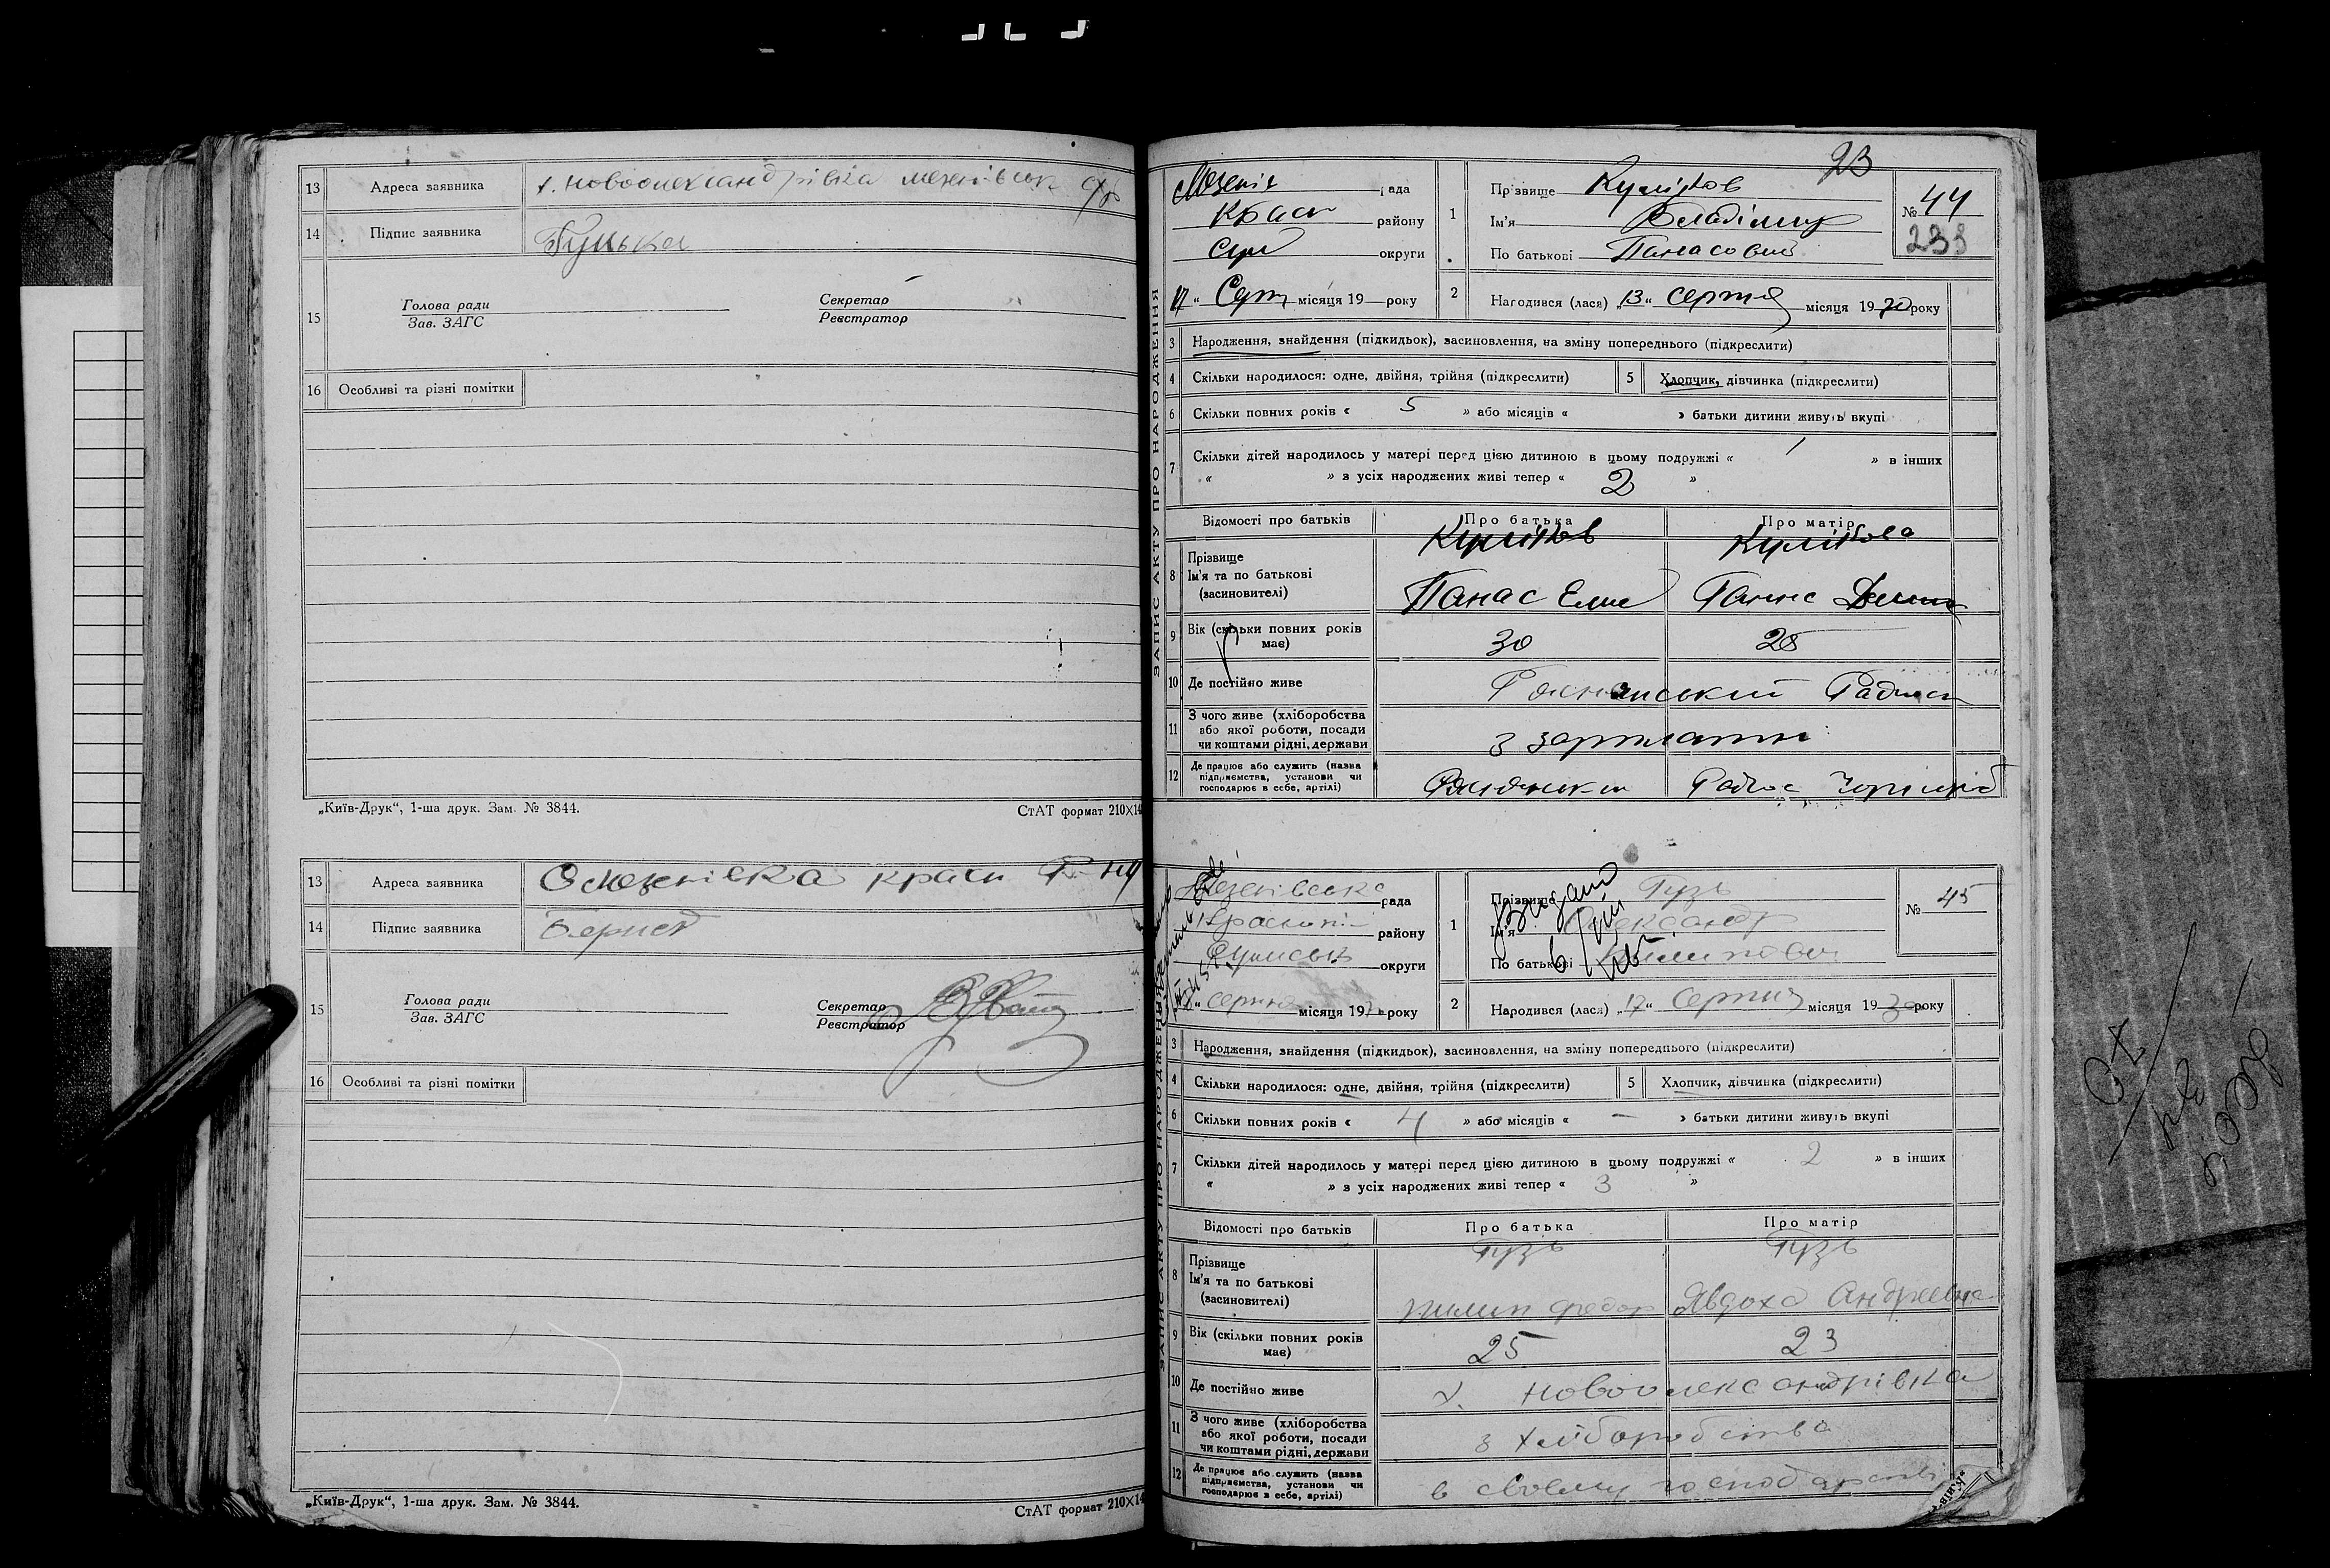 13 Адреса заявника х. Новоолександрівка
14 Підпис заявника Гунька
15 Голова ради
Зав. ЗАГС
Секретар
Реєстратор
16 Особливі та різні помітки
„Київ-Друк“, 1-ша друк. Зам. № 3844. СтАТ формат 210×14
13 Адреса заявника
14 Підпис заявника
15 Голова ради
Зав. ЗАГС
Секретар
Реєстратор
16 Особливі та різні помітки
„Київ-Друк“, 1-ша друк. Зам. № 3844. СтАТ формат 210×14
ЗАПИС АКТУ ПРО НАРОДЖЕННЯ
23
рада
Красн району
Сум округи
17 “ Серп місяця 19 року
1 Прізвище Куліков
Ім'я Владімир
По батькові Панасович
№ 44
233
2 Народився (лася) „13“ серпня місяця 1930 року
3 Народження, знайдення (підкидьок), засиновлення, на зміну попереднього (підкреслити)
4 Скільки народилося: одне, двійня, трійня (підкреслити)
5 Хлопчик, дівчинка (підкреслити)
6 Скільки повних років « 5 » або місяців « » батьки дитини живуть вкупі
7 Скільки дітей народилось у матері перед цією дитиною в цьому подружжі « 1 » в інших
« » з усіх народжених живі тепер « 2 »
Відомості про батьків Про батька Про матір
8 Прізвище Куліков Кулікова
Ім'я та по батькові
(засиновителі) Панас Ганна
9 Вік (скільки повних років має) 30 28
10 Де постійно живе
11 З чого живе (хліборобства або якої роботи, посади чи коштами рідні, держави з зарплати
12 Де працює або служить (назва підприємства, установи чи господарює в себе, артілі)
ЗАПИС АКТУ ПРО НАРОДЖЕННЯ
Мезенівська рада
району
Сумськ округи
“ серпня місяця 19 року
1 Прізвище Гузь
Ім'я Олександр
По батькові Пилипович
Видано
№ 45
2 Народився (лася) „17“ Серпня місяця 1930 року
3 Народження, знайдення (підкидьок), засиновлення, на зміну попереднього (підкреслити)
4 Скільки народилося: одне, двійня, трійня (підкреслити)
5 Хлопчик, дівчинка (підкреслити)
6 Скільки повних років « 4 » або місяців « – » батьки дитини живуть вкупі
7 Скільки дітей народилось у матері перед цією дитиною в цьому подружжі « 2 » в інших
« » з усіх народжених живі тепер « 3 »
Відомості про батьків Про батька Про матір
8 Прізвище Гузь Гузь
Ім'я та по батькові
(засиновителі) Пилип Федор Явдоха Андреевна
9 Вік (скільки повних років має) 25 23
10 Де постійно живе х. Новоолександрівка
11 З чого живе (хліборобства або якої роботи, посади чи коштами рідні, держави з хліборобства
12 Де працює або служить (назва підприємства, установи чи господарює в себе, артілі) в своєму господарстві